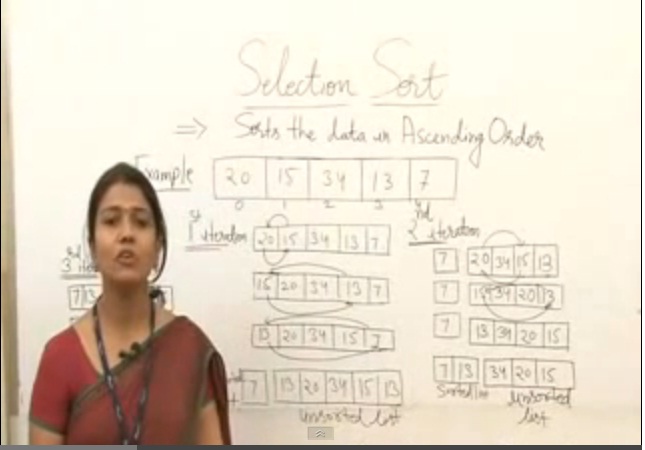 Selection Sort
⇒ Sorts the data in Ascending Order
Example 20 15 34 13 7
0 1 2 3
1st iteration
20 15 34 13 7
15 20 34 13 7
13 20 34 15 7
7 13 20 34 15 13
unsorted list
2nd iteration
7 20 34 15 13
7 15 34 20 13
7 13 34 20 15
7 13 34 20 15
Sorted list
unsorted list
3rd
7 13